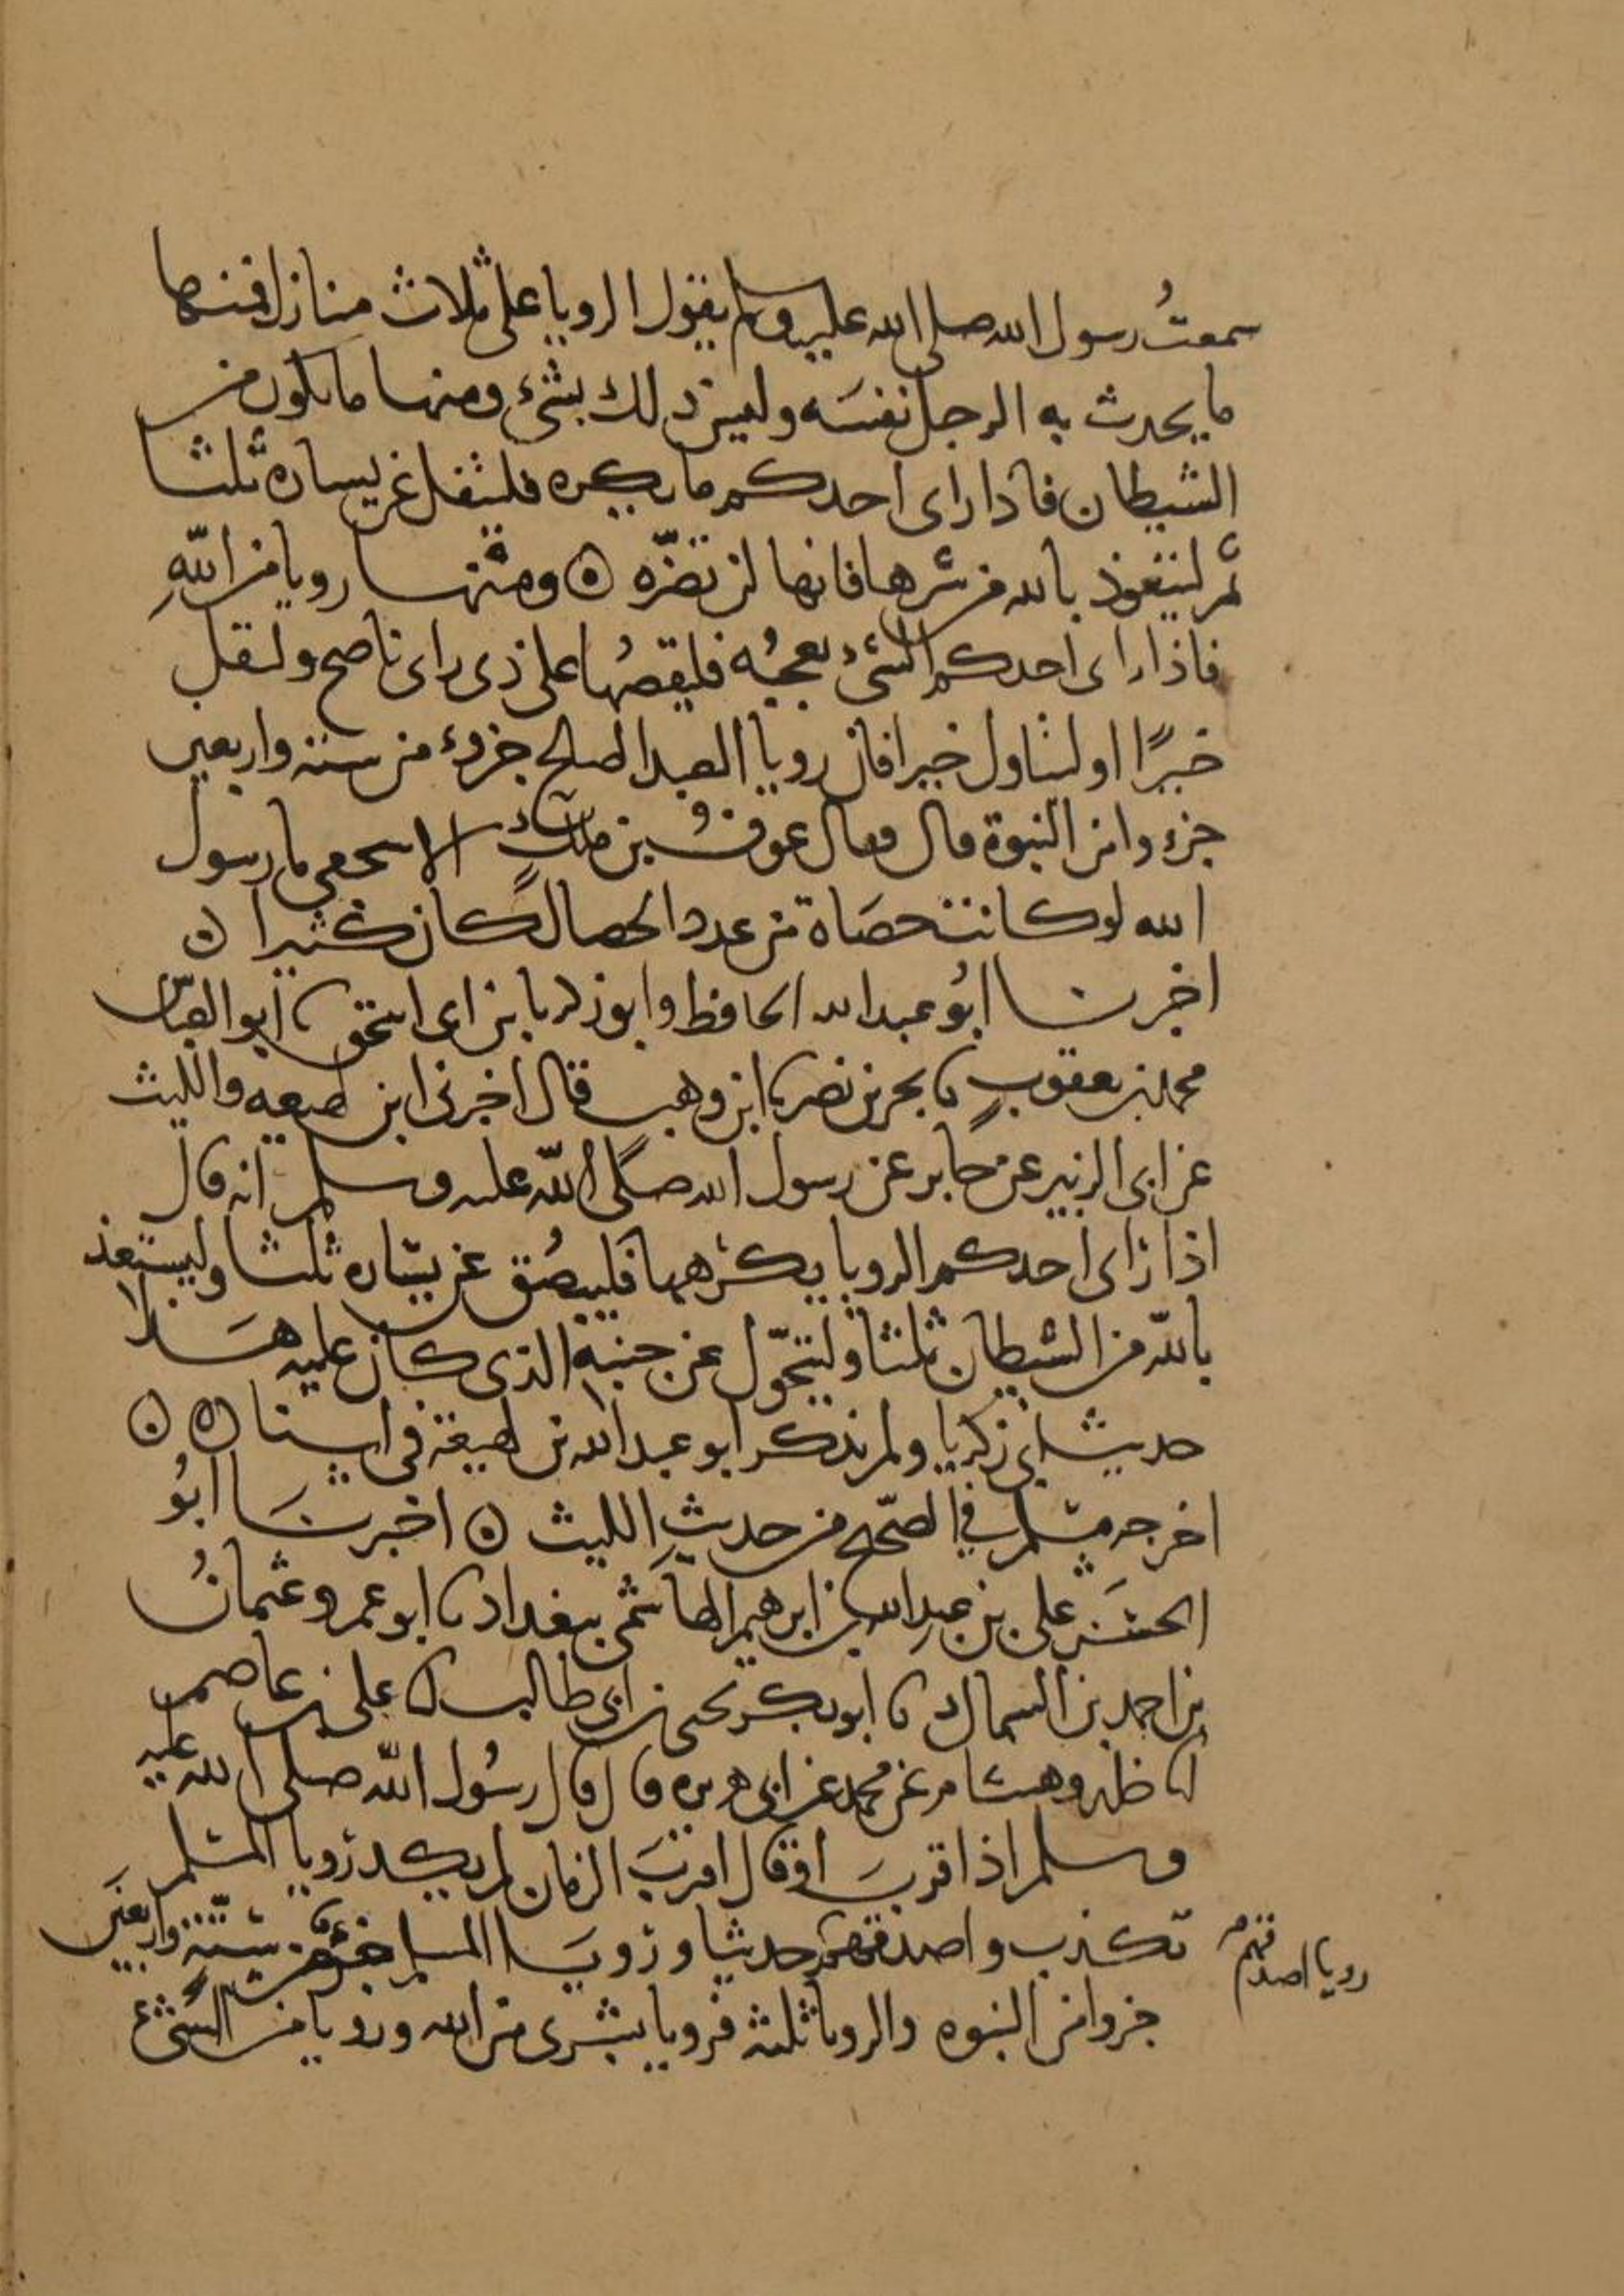 سمعتُ رسول الله صلى الله عليه وسلم يقول الرويا على ثلاث منازل فمنها
ما يحدث به الرجل نفسَه وليس ذلك بشيء ومنها ما يكون من
الشيطان فاذا راى احدكم ما يكره فليتفل عن يساره ثلثا
ثم ليتعوذ بالله من شرها فانها لن تضرّه ⊙ ومنها رويا من اللّهِ
فاذا راى احدكم الشيء يعجبُه فليقصُها على ذي راى ناصح وليقل
خيرًا او ليتاول خيرا فان رويا العبد الصلح جزوء من ستة واربعين
جزءوا من النبوة قال فقال عوفُ بن ملكٍ الاشجعي يا رسول
الله لو كانت حصَاة من عدد الحصا لكان كثيرا ⊙
اخبرنا ابُو عبد الله الحافظ وابو زكريا بن ابي اسحق نا ابو العباس
محمد بن يعقوب نا بحر بن نصر نا ابن وهب قال اخبرني ابن لهيعه والليث
عن ابي الزبير عن جابر عن رسول الله صلى اللّه عليه وسلم انه قال
اذا راى احدكم الرويا يكرهها فليبصُق عن يساره ثلثا وليستعذ
باللّه من الشيطان ثلثا وليتحوّل عن جنبه الذي كان عليه هَذا
حديث ابي زكريا ولم يذكر ابو عبد الله بن لهيعة في اسناده ⊙
اخرجه مسلم في الصّحيح من حديث الليث ⊙ اخبرنَا ابُو
الحسَن علي بن عبدِ الله بن ابرهيم الهاشمي ببغداد نا ابو عمرو عثمانُ
بن احمد بن السماك نا ابو بكر يحيى بن ابي طالب انا علي بن عاصم
انا خلد وهشام عن محمد عن ابي هريره قال قال رسُول اللّه صلى الله عليه
وسلم اذا قربَ او قال اقتربَ الزمان لم يكد رويا المسلم
تكذب واصدقهم حديثا ورويَا المسلم جزو من ستّة واربعين
رويا اصدقهم
جزوا من النبوه والرويا ثلثه فرويا بشرى من الله ورويا من الشيء